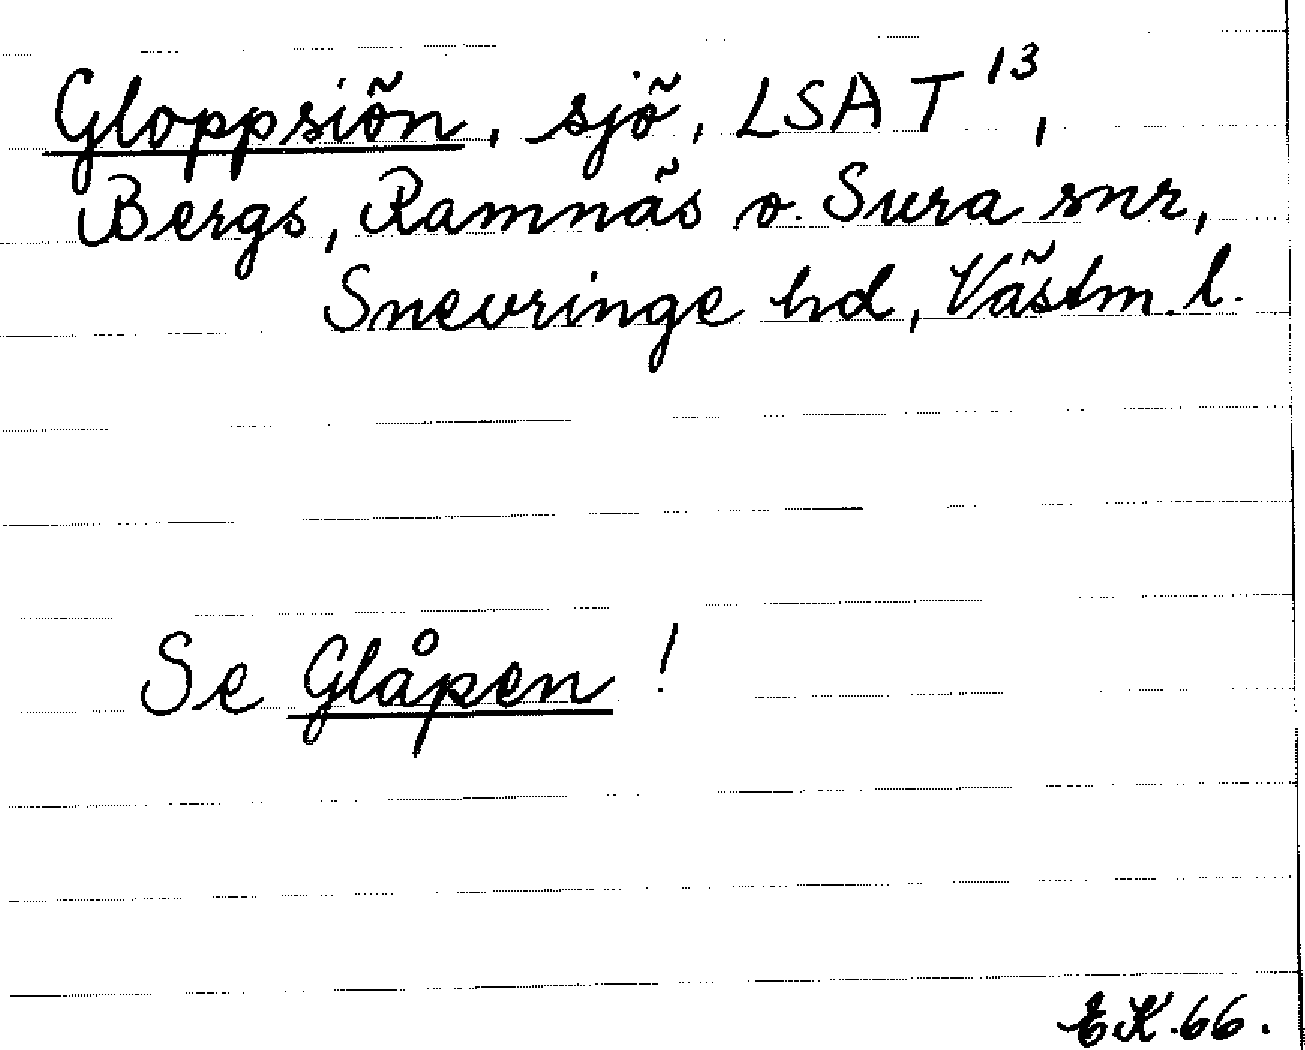 Gloppsiön, sjö, LSA T 13,
Bergs, Ramnäs o. Sura snr,
Snevringe hd, Västm. l.
Se Glåpen !
EK.66.